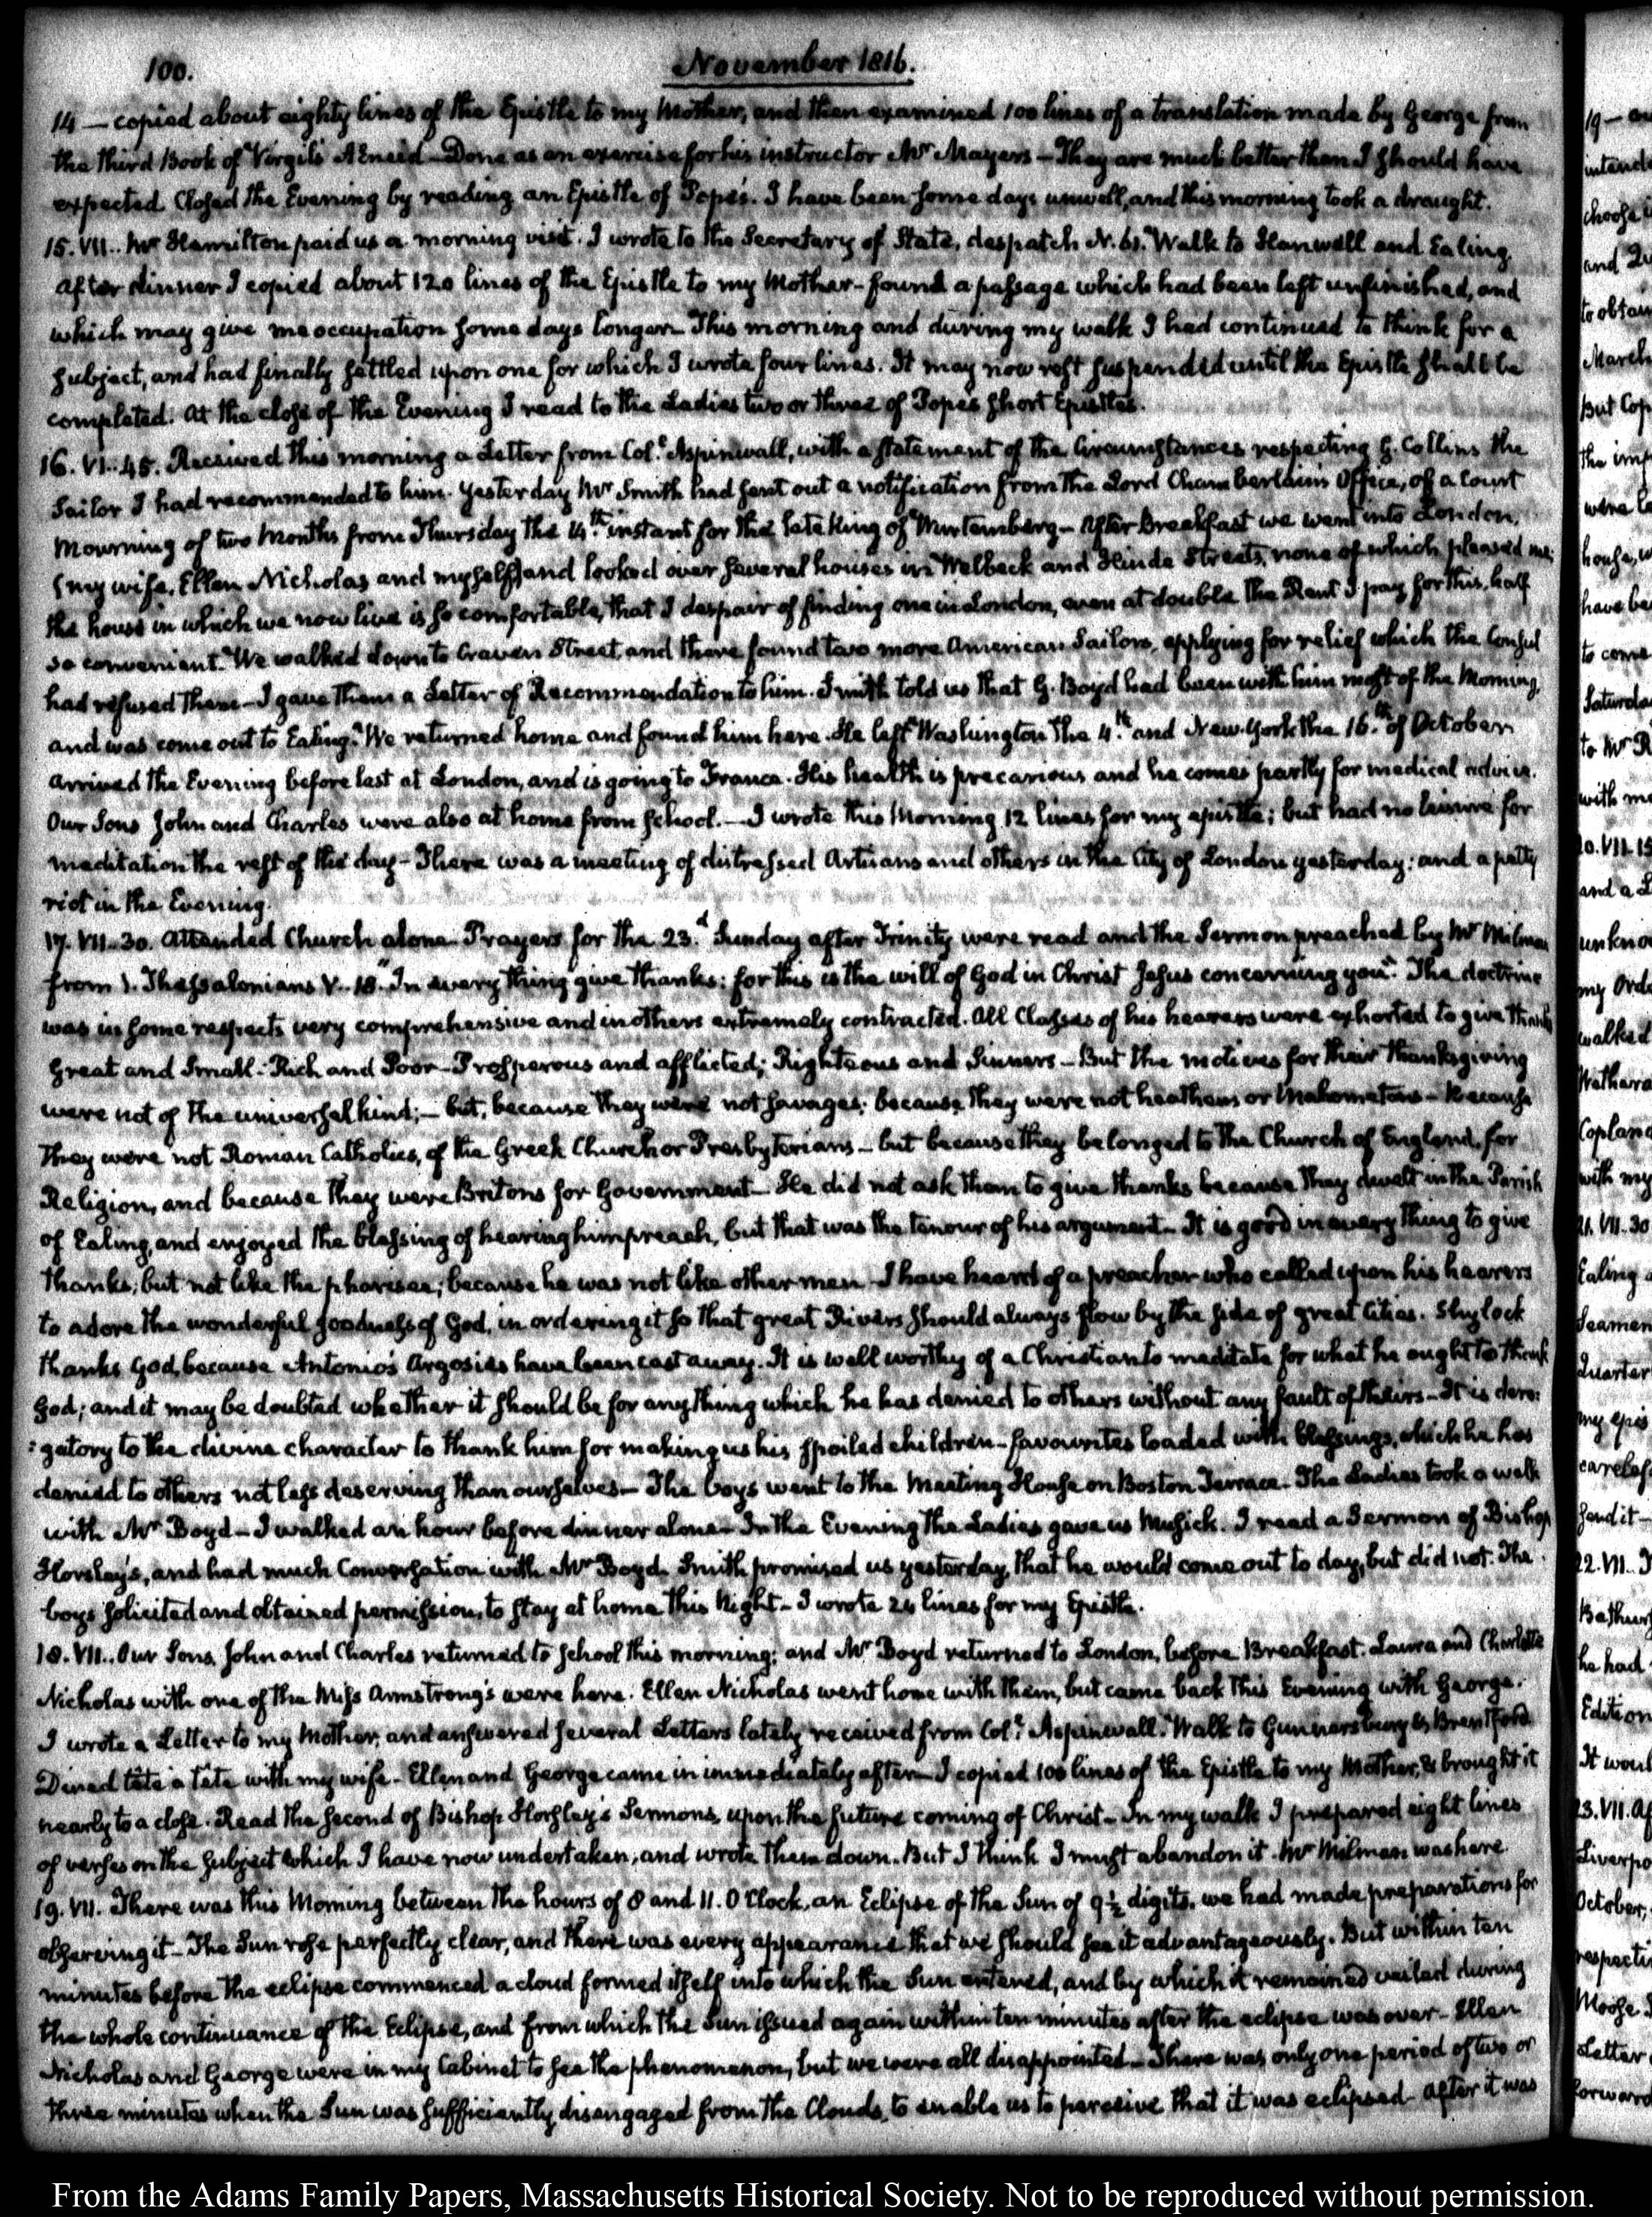 100.
November 1816.
14 — copied about eighty lines of the Epistle to my Mother, and then examined 100 lines of a translation made by George from
the third Book of Virgil's AEneid — Done as an exercise for his instructor Mr Mayers — They are much better than I should have
expected Closed the Evening by reading an Epistle of Pope's. I have been some days unwell, and this morning took a draught.
15. VII.. Mr Hamilton paid us a morning visit. I wrote to the Secretary of State, despatch N. 61. Walk to Hanwell and Ealing.
After dinner I copied about 120 lines of the Epistle to my Mother — found a passage which had been left unfinished, and
which may give me occupation some days longer — This morning and during my walk I had continued to think for a
subject, and had finally settled upon one for which I wrote four lines. It may now rest suspended until the Epistle shall be
completed. At the close of the Evening I read to the Ladies two or three of Popes short Epistles.
16. VI..45. Received this morning a Letter from Col.l Aspinwall, with a statement of the Circumstances respecting G. Collins the
Sailor I had recommended to him. Yesterday Mr Smith had sent out a notification from the Lord Chamberlain's Office, of a Court
Mourning of two Months from Thursday the 14.th instant for the late King of Wurtemberg — After Breakfast we went into London,
(my wife, Ellen Nicholas and myself) and looked over several houses in Welbeck and Hinde Streets, none of which pleased me:
the house in which we now live is so comfortable, that I despair of finding one in London, even at double the Rent I pay for this, half
so convenient. We walked down to Craven Street, and there found two more American Sailors, applying for relief which the Consul
had refused them — I gave them a Letter of Recommendation to him. Smith told us that G. Boyd had been with him most of the Morning,
and was come out to Ealing. We returned home and found him here. He left Washington the 4.th and New-York the 16.th of October
arrived the Evening before last at London, and is going to France. His health is precarious and he comes partly for medical advice.
Our Sons John and Charles were also at home from School. — I wrote this Morning 12 lines for my epistle; but had no leisure for
meditation the rest of the day — There was a meeting of distressed Artisans and others in the City of London yesterday: and a petty
riot in the Evening.
17. VII..30. Attended Church alone. Prayers for the 23.d Sunday after Trinity were read and the Sermon preached by Mr Milman
from 1. Thessalonians V..18. "In every thing give thanks: for this is the will of God in Christ Jesus concerning you". The doctrine
was in some respects very comprehensive and in others extremely contracted. All Classes of his hearers were exhorted to give thanks
Great and Small — Rich and Poor — Prosperous and afflicted; Righteous and Sinners — But the motives for their thanksgiving
were not of the universal kind; — but, because they were not savages; because they were not heathens or Mahometans — Because
they were not Roman Catholics, of the Greek Church or Presbyterians — but because they belonged to the Church of England, for
Religion, and because they were Britons for Government — He did not ask them to give thanks because they dwelt in the Parish
of Ealing, and enjoyed the blessing of hearing him preach, but that was the tenour of his argument — It is good in every thing to give
thanks; but not like the pharisee; because he was not like other men — I have heard of a preacher who called upon his hearers
to adore the wonderful goodness of God, in ordering it so that great Rivers should always flow by the side of great Cities. Shylock
thanks God, because Antonio's Argosies have been cast away. It is well worthy of a Christian to meditate for what he ought to thank
God; and it may be doubted whether it should be for any thing which he has denied to others without any fault of theirs — It is dero:
:gatory to the divine character to thank him for making us his spoiled children — favourites loaded with blessings, which he has
denied to others not less deserving than ourselves — The boys went to the Meeting House on Boston Terrace. The Ladies took a walk
with Mr Boyd — I walked an hour before dinner alone — In the Evening the Ladies gave us Musick. I read a Sermon of Bishop
Horsley's, and had much Conversation with Mr Boyd. Smith promised us yesterday, that he would come out to day, but did not. The
boys solicited and obtained permission, to stay at home this Night — I wrote 24 lines for my Epistle.
18. VII.. Our Sons, John and Charles returned to School this morning; and Mr Boyd returned to London, before Breakfast. Laura and Charlotte
Nicholas with one of the Miss Armstrong's were here. Ellen Nicholas went home with them, but came back this Evening with George.
I wrote a Letter to my Mother, and answered several Letters lately received from Col.l Aspinwall. Walk to Gunnersbury & Brentford.
Dined tête a tête with my wife — Ellen and George came in immediately after — I copied 100 lines of the Epistle to my Mother, & brought it
nearly to a close. Read the second of Bishop Horsley's Sermons, upon the future coming of Christ — In my walk I prepared eight lines
of verses on the subject which I have now undertaken, and wrote them down. But I think I must abandon it. Mr Milman was here.
19. VII. There was this Morning between the hours of 8 and 11. O'Clock, an Eclipse of the Sun of 9½ digits. we had made preparations for
observing it — The Sun rose perfectly clear, and there was every appearance that we should see it advantageously. But within ten
minutes before the eclipse commenced a cloud formed itself into which the Sun entered, and by which it remained veiled during
the whole continuance of the Eclipse, and from which the Sun issued again within ten minutes after the eclipse was over — Ellen
Nicholas and George were in my Cabinet to see the phenomenon, but we were all disappointed — There was only one period of two or
three minutes when the Sun was sufficiently disengaged from the Clouds, to enable us to perceive that it was eclipsed — After it was
From the Adams Family Papers, Massachusetts Historical Society. Not to be reproduced without permission.